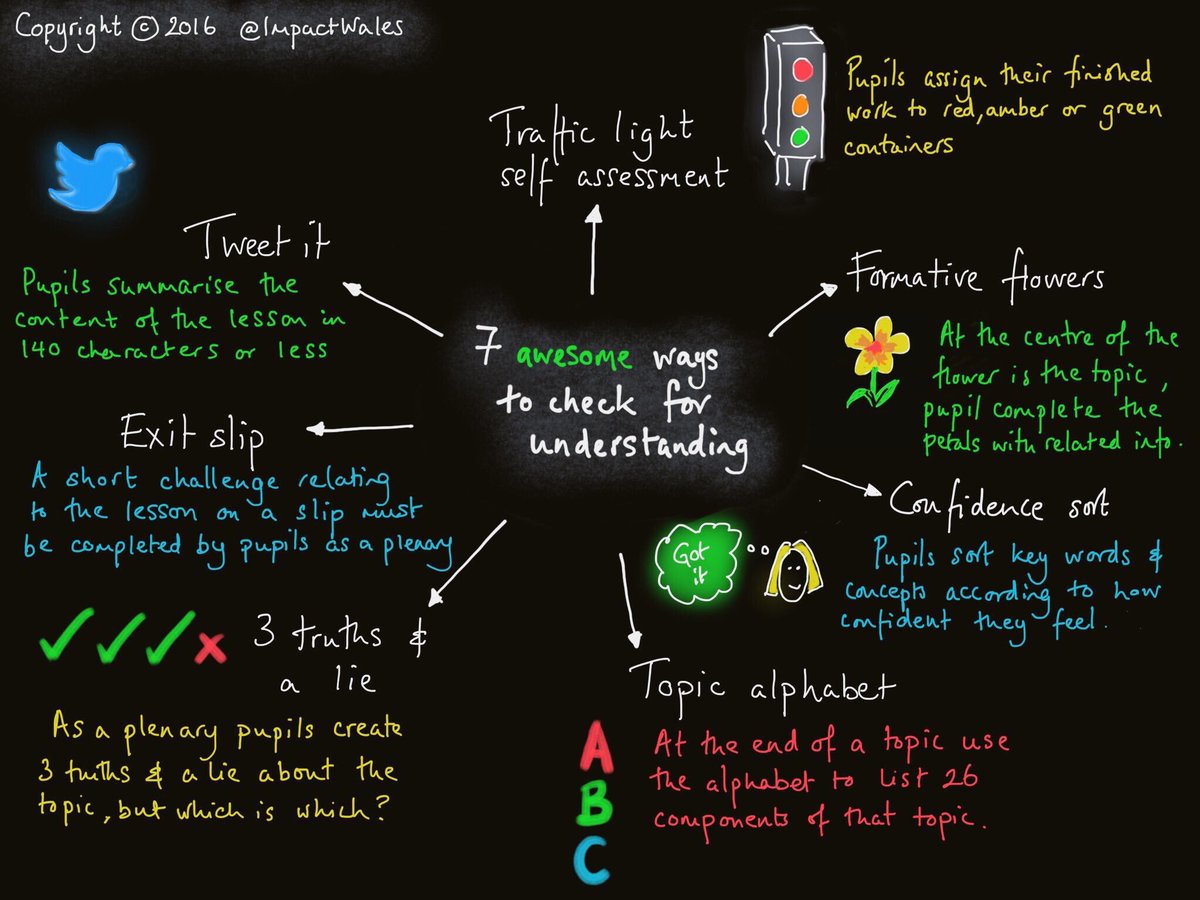 Copyright © 2016 @ImpactWales
Traffic light
self assessment
Pupils assign their finished
work to red, amber or green
containers
Tweet it
Pupils summarise the
content of the lesson in
140 characters or less
Formative flowers
At the centre of the
flower is the topic,
pupil complete the
petals with related info.
7 awesome ways
to check for
understanding
Exit slip
A short challenge relating
to the lesson on a slip must
be completed by pupils as a plenary
Confidence sort
Got
it
Pupils sort key words &
concepts according to how
confident they feel.
3 truths &
a lie
As a plenary pupils create
3 truths & a lie about the
topic, but which is which?
Topic alphabet
A
B
C
At the end of a topic use
the alphabet to list 26
components of that topic.